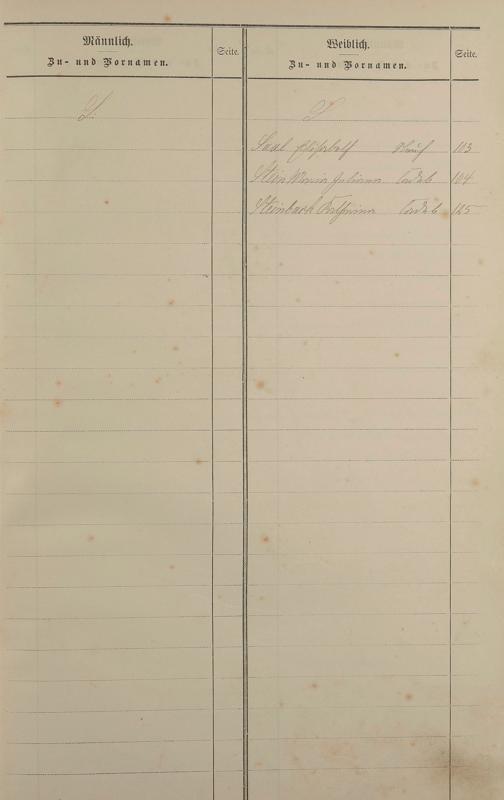 Männlich.
Zu- und Vornamen.
Seite.
Weiblich.
Zu- und Vornamen.
Seite.
S.
S
Saal Elisabeth 103
Stein Maria Juliana 104
Steinbach 125